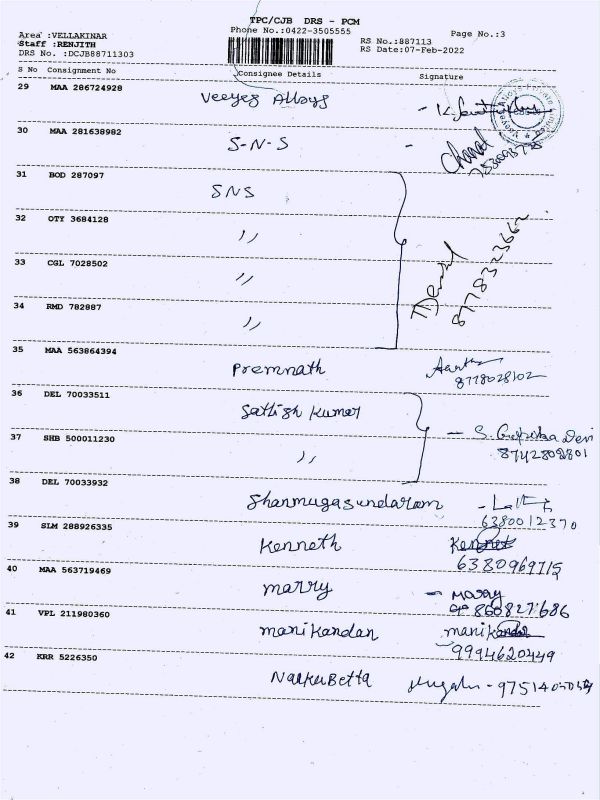 TPC/CJB DRS - PCM
Area :VELLAKINAR Phone No.:0422-3505555 Page No.:3
Staff :RENJITH RS No.:887113
DRS No. :DCJB88711303 RS Date:07-Feb-2022
S No Consignment No Consignee Details Signature
29 MAA 286724928 Veeyes Alloys
30 MAA 281638982 S-N-S
31 BOD 287097 SNS
32 OTY 3684128 ,,
33 CGL 7028502 ,,
8778323662
34 RMD 782887 ,,
35 MAA 563864394 Premnath
8778028102
36 DEL 70033511 Sathish Kumar
37 SHB 500011230 ,,
8742809801
38 DEL 70033932 Shanmugasundaram
6380012370
39 SLM 288926335 Kenneth
6380969715
40 MAA 563719469 marry - Marry
860827686
41 VPL 211980360 manikandan manikandan
9994620449
42 KRR 5226350